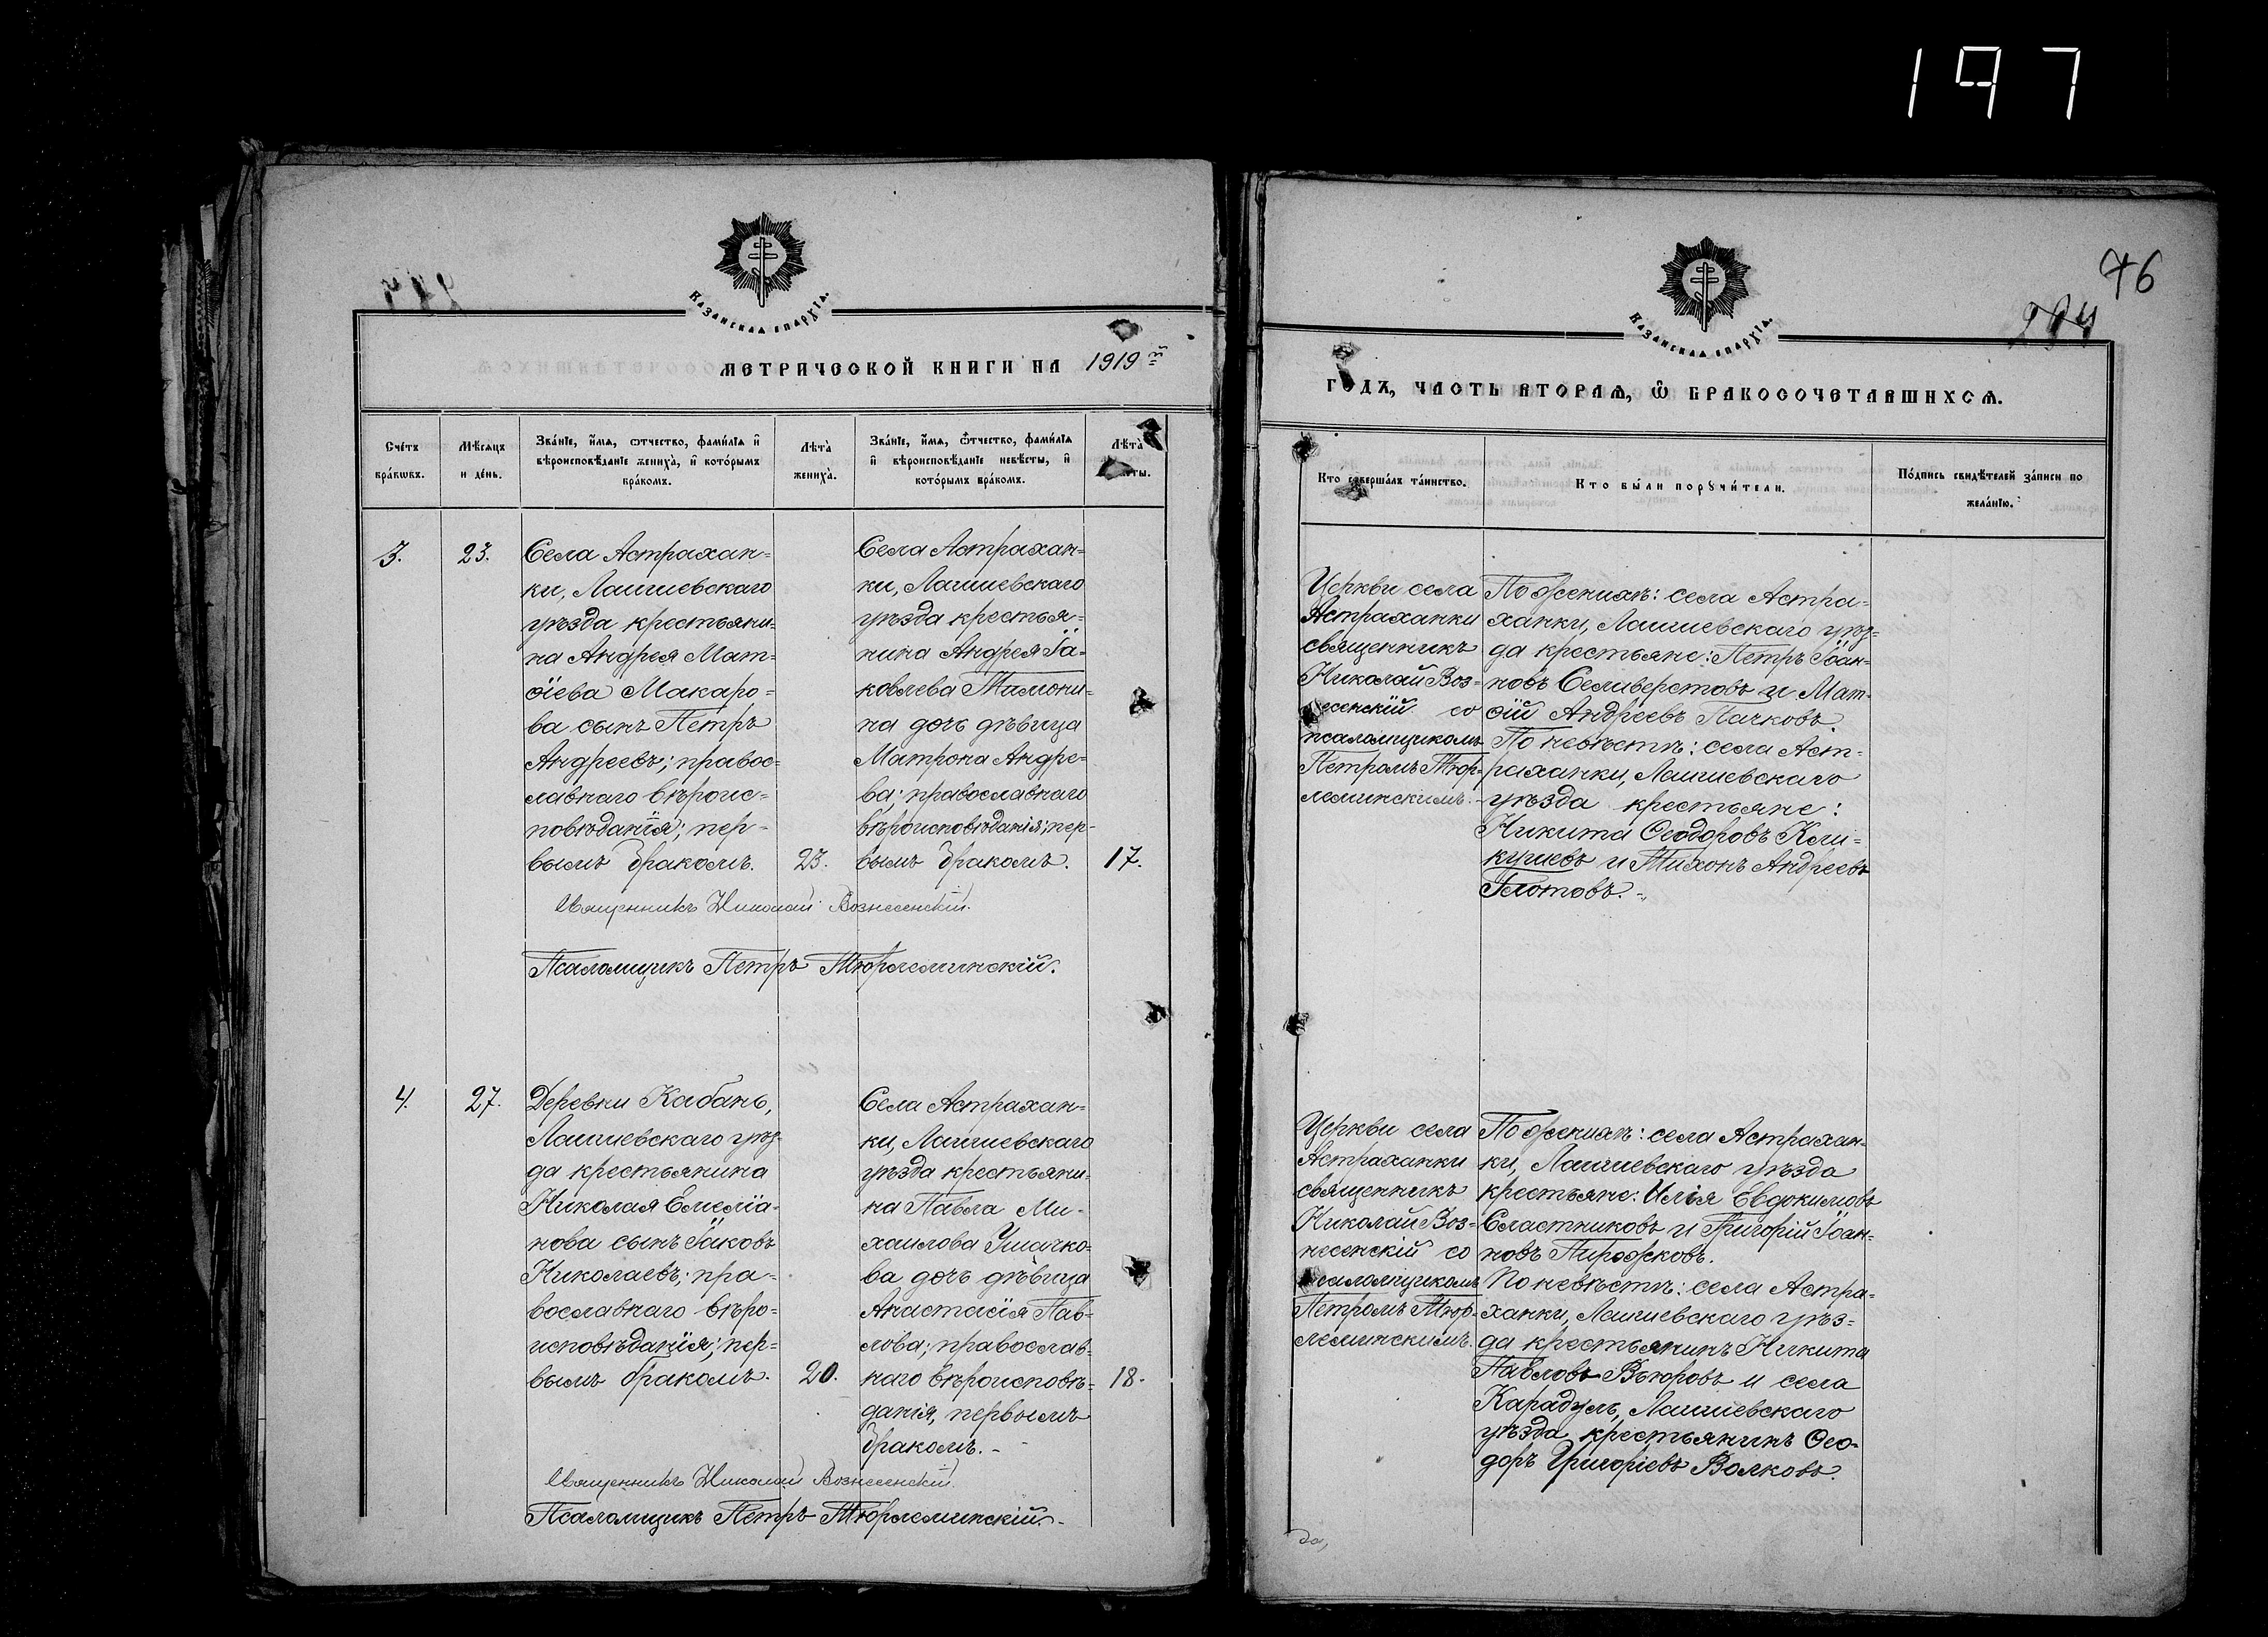 197
Казанская епархія.
МЕТРИЧЕСКОЙ КНИГИ НА 1919й
Сче́тъ бра́кωвъ.
Мѣ́сяцъ и де́нь.
Зва́нїе, и́мѧ, ѻ́тчество, фами́лїѧ и҆ вѣроисповѣ́данїе жениха̀, и҆ кото́рымъ бра́комъ.
Лѣта̀ жениха̀.
Зва́нїе, и́мѧ, ѻ́тчество, фами́лїѧ и҆ вѣроисповѣ́данїе невѣ́сты, и҆ кото́рымъ бра́комъ.
Лѣта̀
3.
23.
Села Астрахан=
ки, Лаишевскаго
уѣзда крестьяни=
на Андрея Мат=
ѳіева Макаро=
ва сынъ Петръ
Андреевъ; правос=
лавнаго вѣроис=
повѣданія; пер=
вымъ бракомъ.
23.
Села Астрахан=
ки, Лаишевскаго
уѣзда крестья=
нина Андрея Іа=
ковлева Тимони=
на дочь дѣвица
Матрона Андре=
ва; православнаго
вѣроисповѣданія; пер=
вымъ бракомъ.
17.
Священникъ Николай Вознесенскій.
Псаломщикъ Петръ Тюрлеминскій.
4.
27.
Деревни Кабанъ,
Лаишевскаго уѣз=
да крестьянина
Николая Емеліа=
нова сынъ Іаковъ
Николаевъ; пра=
вославнаго вѣро=
исповѣданія; пер=
вымъ бракомъ.
20.
Села Астрахан=
ки, Лаишевскаго
уѣзда крестьяни=
на Павла Ми=
хаилова Ушачко=
ва дочь дѣвица
Анастасія Пав=
лова; православ=
наго вѣроисповѣ=
данія, первымъ
бракомъ. -
18.
Священникъ Николай Вознесенскій.
Псаломщикъ Петръ Тюрлеминскій. -
76
Казанская епархія.
ГОДЪ, ЧАСТЬ ВТОРАѦ, Ѿ БРАКОСОЧЕТАВШИХСѦ.
Кто соверша́лъ та́инство.
Кто бы́ли порꙋчи́тели.
По́дпись свидѣ́телей за́писи по жела́нїю.
Церкви села
Астраханки
священникъ
Николай Воз=
несенскій со
псаломщикомъ
Петромъ Тюр=
леминскимъ.
По женихѣ: села Астра=
ханки, Лаишевскаго уѣз=
да крестьяне: Петръ Іоан=
новъ Селиверстовъ и Мат=
ѳій Андреевъ Пачковъ.
По невѣстѣ: села Аст=
раханки, Лаишевскаго
уѣзда крестьяне:
Никита Ѳеодоровъ Кли=
кушевъ и Тихонъ Андреевъ
Глотовъ. -
Церкви села
Астраханки
священникъ
Николай Воз=
несенскій со
псаломщикомъ
Петромъ Тюр=
леминскимъ.
По женихѣ: села Астрахан=
ки, Лаишевскаго уѣзда
крестьяне: Илія Евдокимовъ
Сластниковъ и Григорій Іоан=
новъ Пирожковъ.
По невѣстѣ: села Астра=
ханки, Лаишевскаго уѣз=
да крестьянинъ Никита
Павловъ Вьюровъ и села
Карадулъ, Лаишевскаго
уѣзда, крестьянинъ Ѳео=
доръ Григоріевъ Волковъ.